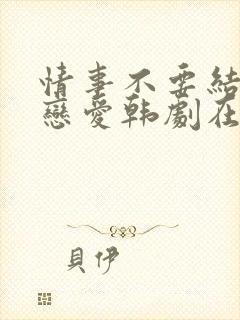 情事不要結
戀愛韩劇在
貝伊